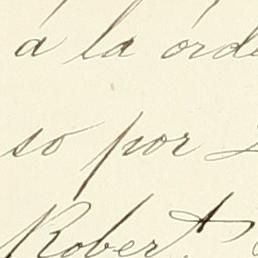 á la órde
so por
Robert.